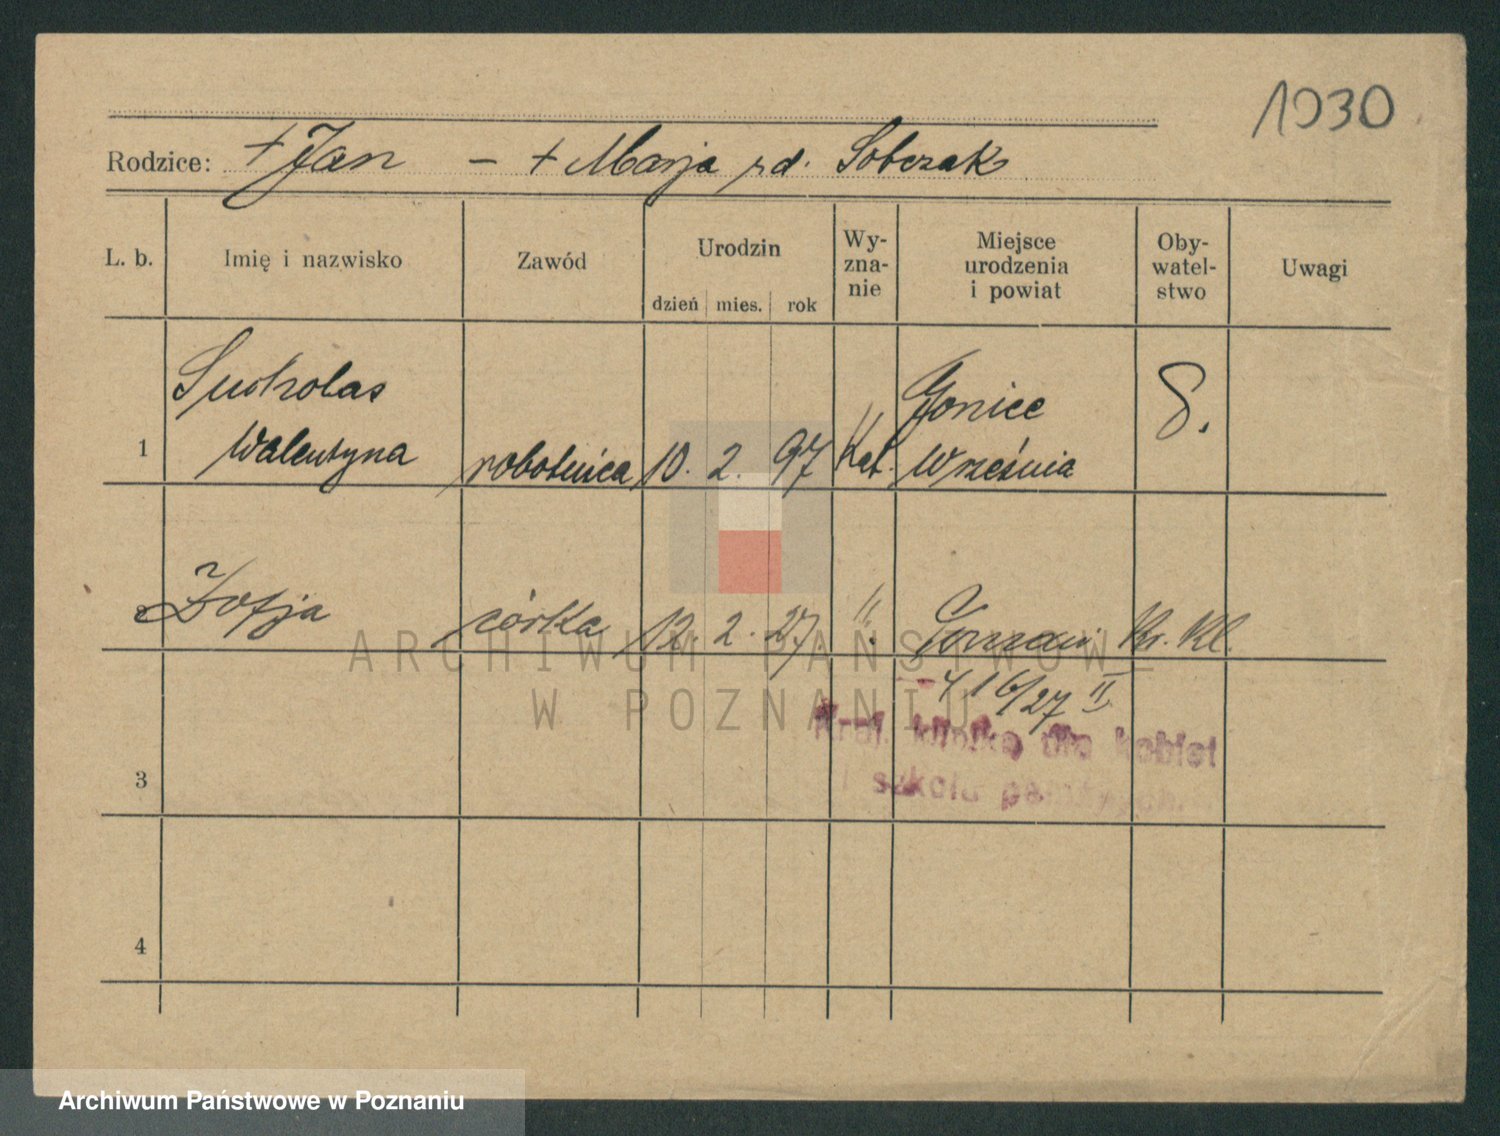 1930
Rodzice: + Jan - + Marja rd. Sobczak
L. b. Imię i nazwisko Zawód Urodzin dzień mies. rok Wy-zna-nie Miejsce urodzenia i powiat Oby-watel-stwo Uwagi
Sucholas
1 Walentyna robotnica 10. 2. 97 Kat. Września
2 Zofja córka 12. 2. 27. " Poznań Kr. Kl.
16/27 II
Kraj. klinika dla kobiet
i szkoła położnych
3
4
ARCHIWUM PAŃSTWOWE
W POZNANIU
Archiwum Państwowe w Poznaniu